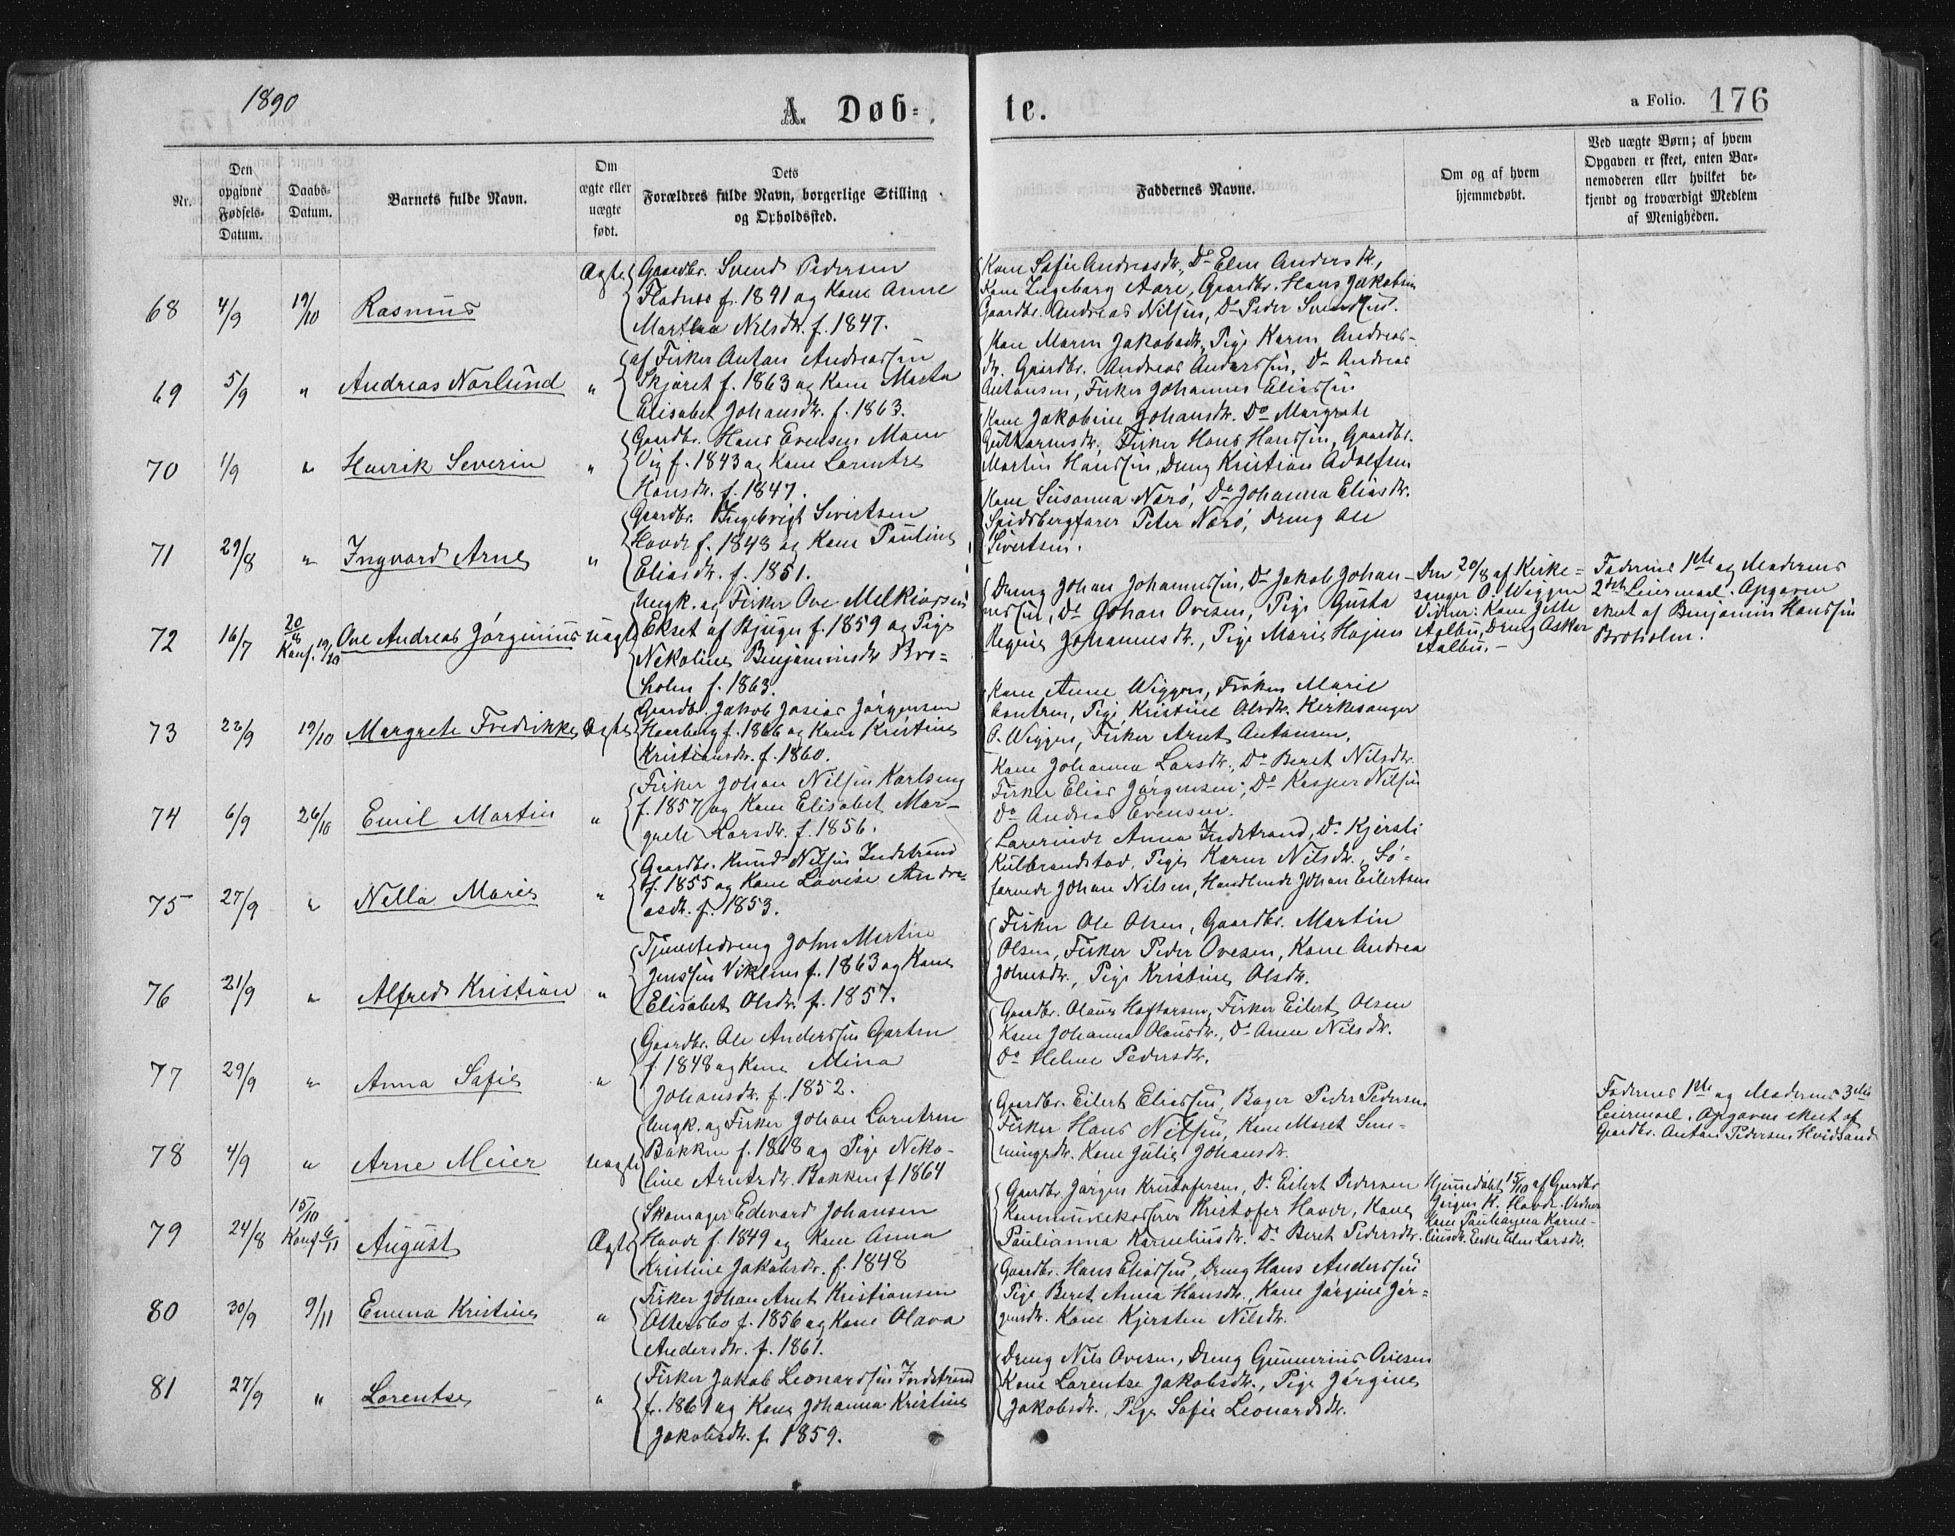 1890
A. Døb-
te.
a Folio. 176
Nr.
Den opgivne Fødsels-Datum.
Daabs-Datum.
Barnets fulde Navn.
Om ægte eller uægte født.
Dets Forældres fulde Navn, borgerlige Stilling og Opholdssted.
Faddernes Navne.
Om og af hvem hjemmedøbt.
Ved uægte Børn; af hvem Opgaven er skeet, enten Barnemoderen eller hvilket bekjendt og troværdigt Medlem af Menigheden.
68 4/9 19/10 Rasmus Ægte
Gaardbr. Svend Pedersen
f. 1841 og Kone Anne
Martha Nilsdtr. f. 1847.
Kone Safie Andreasdtr., Do Elen Andersdtr,
Kone Ingeborg Aare, Gaardbr. Hans Jakobsen
Gaardbr. Andreas Nilsen, Do Peder Svendsen.
69 5/9 " Andreas Norlund "
af Fisker Antan Andreassen
Skjæret f. 1863 og Kone Marta
Elisabet Johansdtr. f. 1863.
Kone Maren Jakobsdtr, Pige Karen Andreas-
dtr. Gaardbr. Andreas Andersen, Do Andreas
Antonsen, Fisker Johannes Eliassen
70 1/9 " Henrik Severin "
Gaardbr. Hans Evensen
Vig f. 1843 og Kone Lorentse
Hansdtr. f. 1847.
Kone Jakobine Johansdtr. Do Margrete
Guttormsdtr, Fisker Hans Hansen, Gaardbr.
Martin Hansen, Dreng Kristian Adolfsen
71 29/8 " Ingvard Arne "
Gaardbr. Ingebrigt Sivertsen
Hovde f. 1848 og Kone Pauline
Eliasdtr. f. 1851.
Kone Susanna Narø, Do Johanna Eliasdtr.
Spidsbergfarer Peter Narø, Dreng Ole
Sivertsen.
72 16/7 20/8 Konf. 19/10 Ove Andreas Jørginius uægte
Ungk. og Fisker Ove Melkiorsen
Ekset af Bjugn f. 1859 og Pige
Nekoline Benjaminsdtr Bro-
holm f. 1863.
Dreng Johan Johannessen, Do Jakob Johan-
nessen, Do Johan Ovesen, Pige Gusta
Regine Johannesdtr., Pige Marie Højem
Den 20/8 af Kirke-
sanger O. Wiggen
Vidner: Kone Jette
Aalbu, Dreng Oskar
Aalbu.
Faderens 1ste og Moderens
2det Leiermaal. Opgaven
skeet af Benjamin Hansen
Broholm.
73 22/9 19/10 Margrete Fredrikke Ægte
Gaardbr. Jakob Josias Jørgensen
f. 1866 og Kone Kristine
Kristiansdtr. f. 1860.
Kone Anne Wiggen, Frøken Marie
Pige Kristine Olsdtr. Kirkesanger
O. Wiggen, Fisker Arnt Antonsen.
74 6/9 26/10 Emil Martin "
Fisker Johan Nilsen Karlseng
f. 1857 og Kone Elisabet Mar-
grete Larsdtr. f. 1856.
Kone Johanna Larsdtr., Do Beret Nilsdtr.
Fisker Elias Jørgensen, Do Kasper Nilsen
Do Andreas Evensen.
75 27/9 " Nella Marie "
Gaardbr. Knud Nilsen Indstrand
f. 1855 og Kone Lovise Andre-
asdtr. f. 1853.
Lærerinde Anna Indstrand, Do Kjersti
Kulbrandstad, Pige Karen Nilsdtr., Sø-
farende Johan Nilsen, Handlende Johan Eilertsen
76 21/9 " Alfred Kristian "
Tjenestedreng John Martin
Jenssen Viklem f. 1863 og Kone
Elisabet Olsdtr. f. 1857.
Fisker Ole Olsen, Gaardbr. Martin
Olsen, Fisker Peder Ovesen, Kone Andrea
Johnsdtr., Pige Kristine Olsdtr.
77 29/9 " Anna Safie "
Gaardbr. Ole Anderssen Garten
f. 1848 og Kone Mina
Johansdtr. f. 1852.
Gaardbr. Olaus Haftorsen, Fisker Eilert Olsen
Kone Johanna Olausdtr., Do Anne Nilsdtr.
Do Helene Pedersdtr.
78 4/9 " Arne Meier uægte
Ungk. og Fisker Johan Lorntsen
Bakken f. 1868 og Pige Neko-
line Arntsdtr. Bakken f 1864
Gaardbr. Eilert Eliassen, Bager Peder Pedersen
Fisker Hans Nilsen, Kone Maret Sem-
mingsdtr. Kone Julie Johansdtr.
Faderens 1ste og Moderens 3die
Leiermaal. Opgaven skeet af
Gaardbr. Antan Pedersen Hvidsand
79 24/8 15/10 Konf. 6/11 August Ægte
Skomager Edevard Johansen
Hovde f. 1849 og Kone Anna
Kristine Jakobsdtr. f. 1848
Gaardbr. Jørgen Kristofersen, Do Eilert Pedersen
Kommunekasserer Kristofer Hover, Kone
Paulianna Karneliusdtr. Do Beret Pedersdtr.
Hjemmedøbt 15/10 af Gaardbr
Jørgen K. Hovde. Vidner
Kone Paulianna Karne-
liusdtr. Enke Elen Larsdtr.
80 30/9 9/11 Emma Kristine "
Fisker Johan Arnt Kristiansen
Ottersbo f. 1856 og Kone Olava
Andersdtr. f. 1861.
Gaardbr. Hans Eliassen, Dreng Hans Anderssen
Pige Beret Anna Hansdtr., Kone Jørgine Jør-
gensdtr. Kone Kjersten Nilsdtr.
81 27/9 " Lorentse "
Fisker Jakob Leonardsen Indstrand
f. 1861 og Kone Johanna Kristine
Jakobsdtr. f. 1859.
Dreng Nils Ovesen, Dreng Gunnerius Ovesen
Kone Lorentse Jakobsdtr., Pige Jørgine
Jakobsdtr., Pige Safie Leonardsdtr.